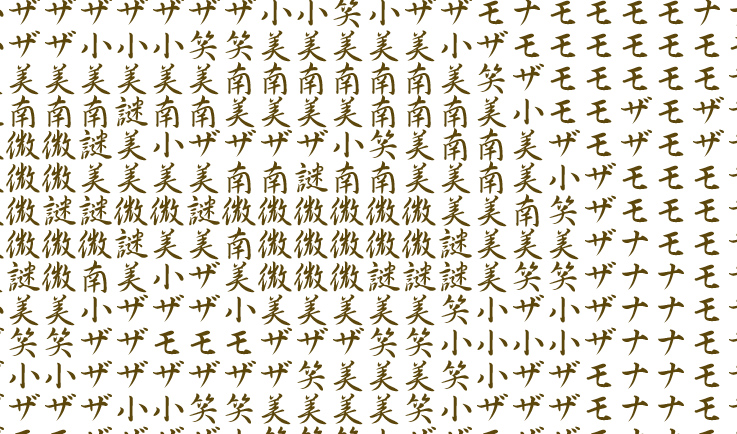 ザザザザザザザ小小笑小ザザモナモモモモナ
ザザ小小小笑笑美美美美美小ザモモモモモモ
美美美美美美南南南南南南美笑ザモモモモモ
南南南謎南南美美美美南南南美小モモザモザ
微微謎美小ザザザザ小笑美南南美ザモザモザ
微微美美美美南南謎南南美美南美小ザモモモ
微謎謎微微謎微微微微微微美美南笑ザモモモ
微微微謎美美南微微微微微謎美美美ザナモモ
謎微南美小ザ美微微微謎謎謎美笑笑ザナナモ
美美小ザザザ小美美美美美笑小ザ小ザナナモ
笑笑ザザモモモザザザ笑笑小小小小ザナナモ
小小ザザザザザザ笑美美美笑小ザザモナナモ
ザザザ小小笑笑美美美美笑小ザザザモナナモ